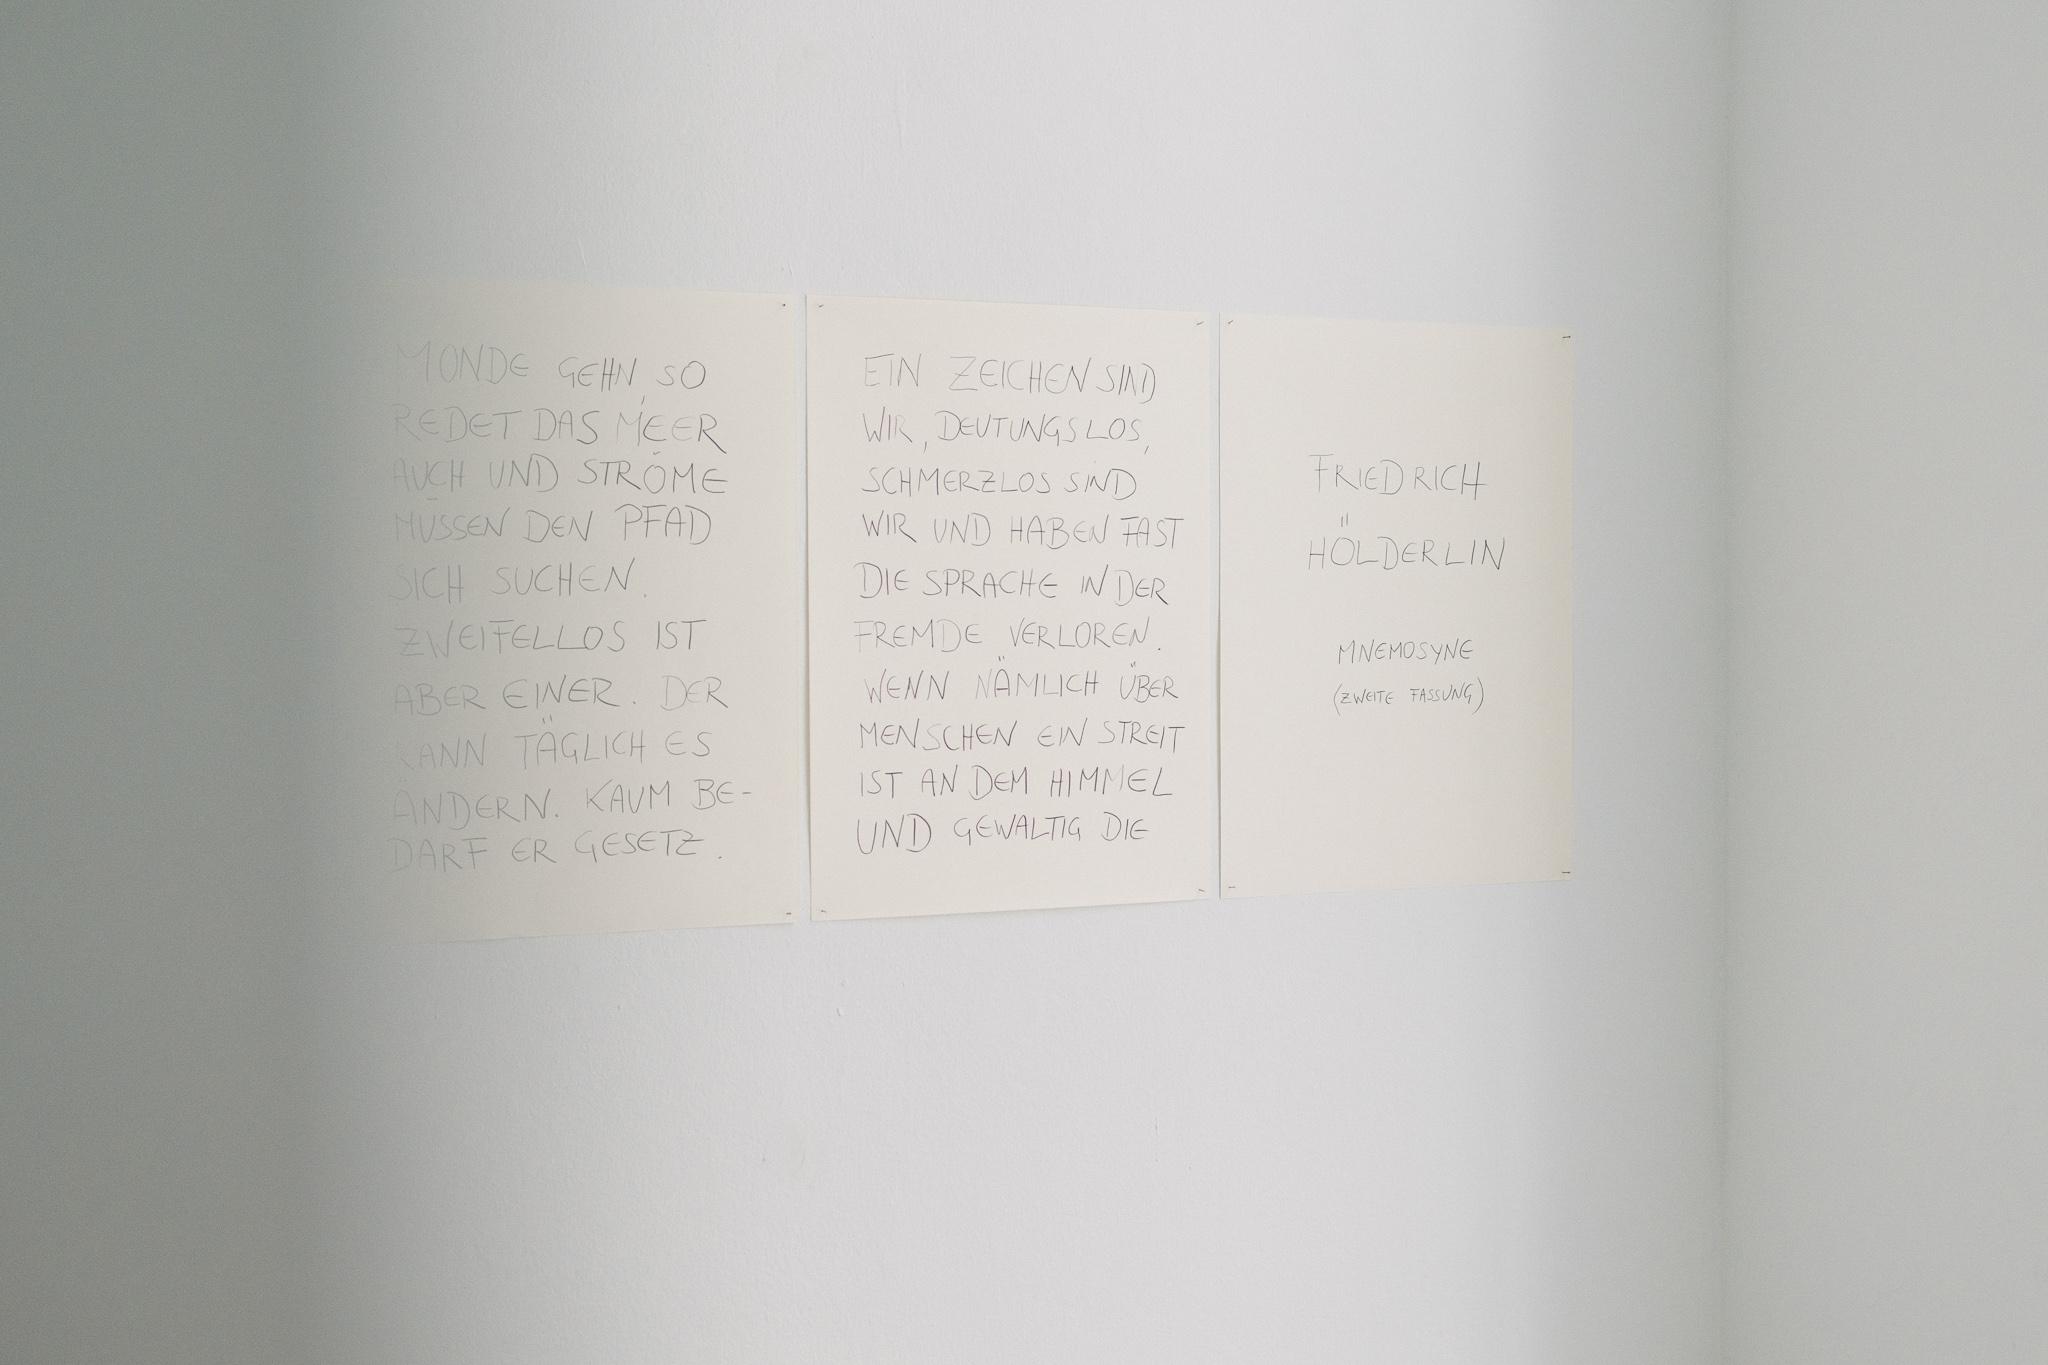 FRIEDRICH
HÖLDERLIN
MNEMOSYNE
(ZWEITE FASSUNG)
EIN ZEICHEN SIND
WIR, DEUTUNGSLOS,
SCHMERZLOS SIND
WIR UND HABEN FAST
DIE SPRACHE IN DER
FREMDE VERLOREN.
WENN NÄMLICH ÜBER
MENSCHEN EIN STREIT
IST AN DEM HIMMEL
UND GEWALTIG DIE
MONDE GEHN, SO
REDET DAS MEER
AUCH UND STRÖME
MÜSSEN DEN PFAD
SICH SUCHEN.
ZWEIFELLOS IST
ABER EINER. DER
KANN TÄGLICH ES
ÄNDERN. KAUM BE-
DARF ER GESETZ.